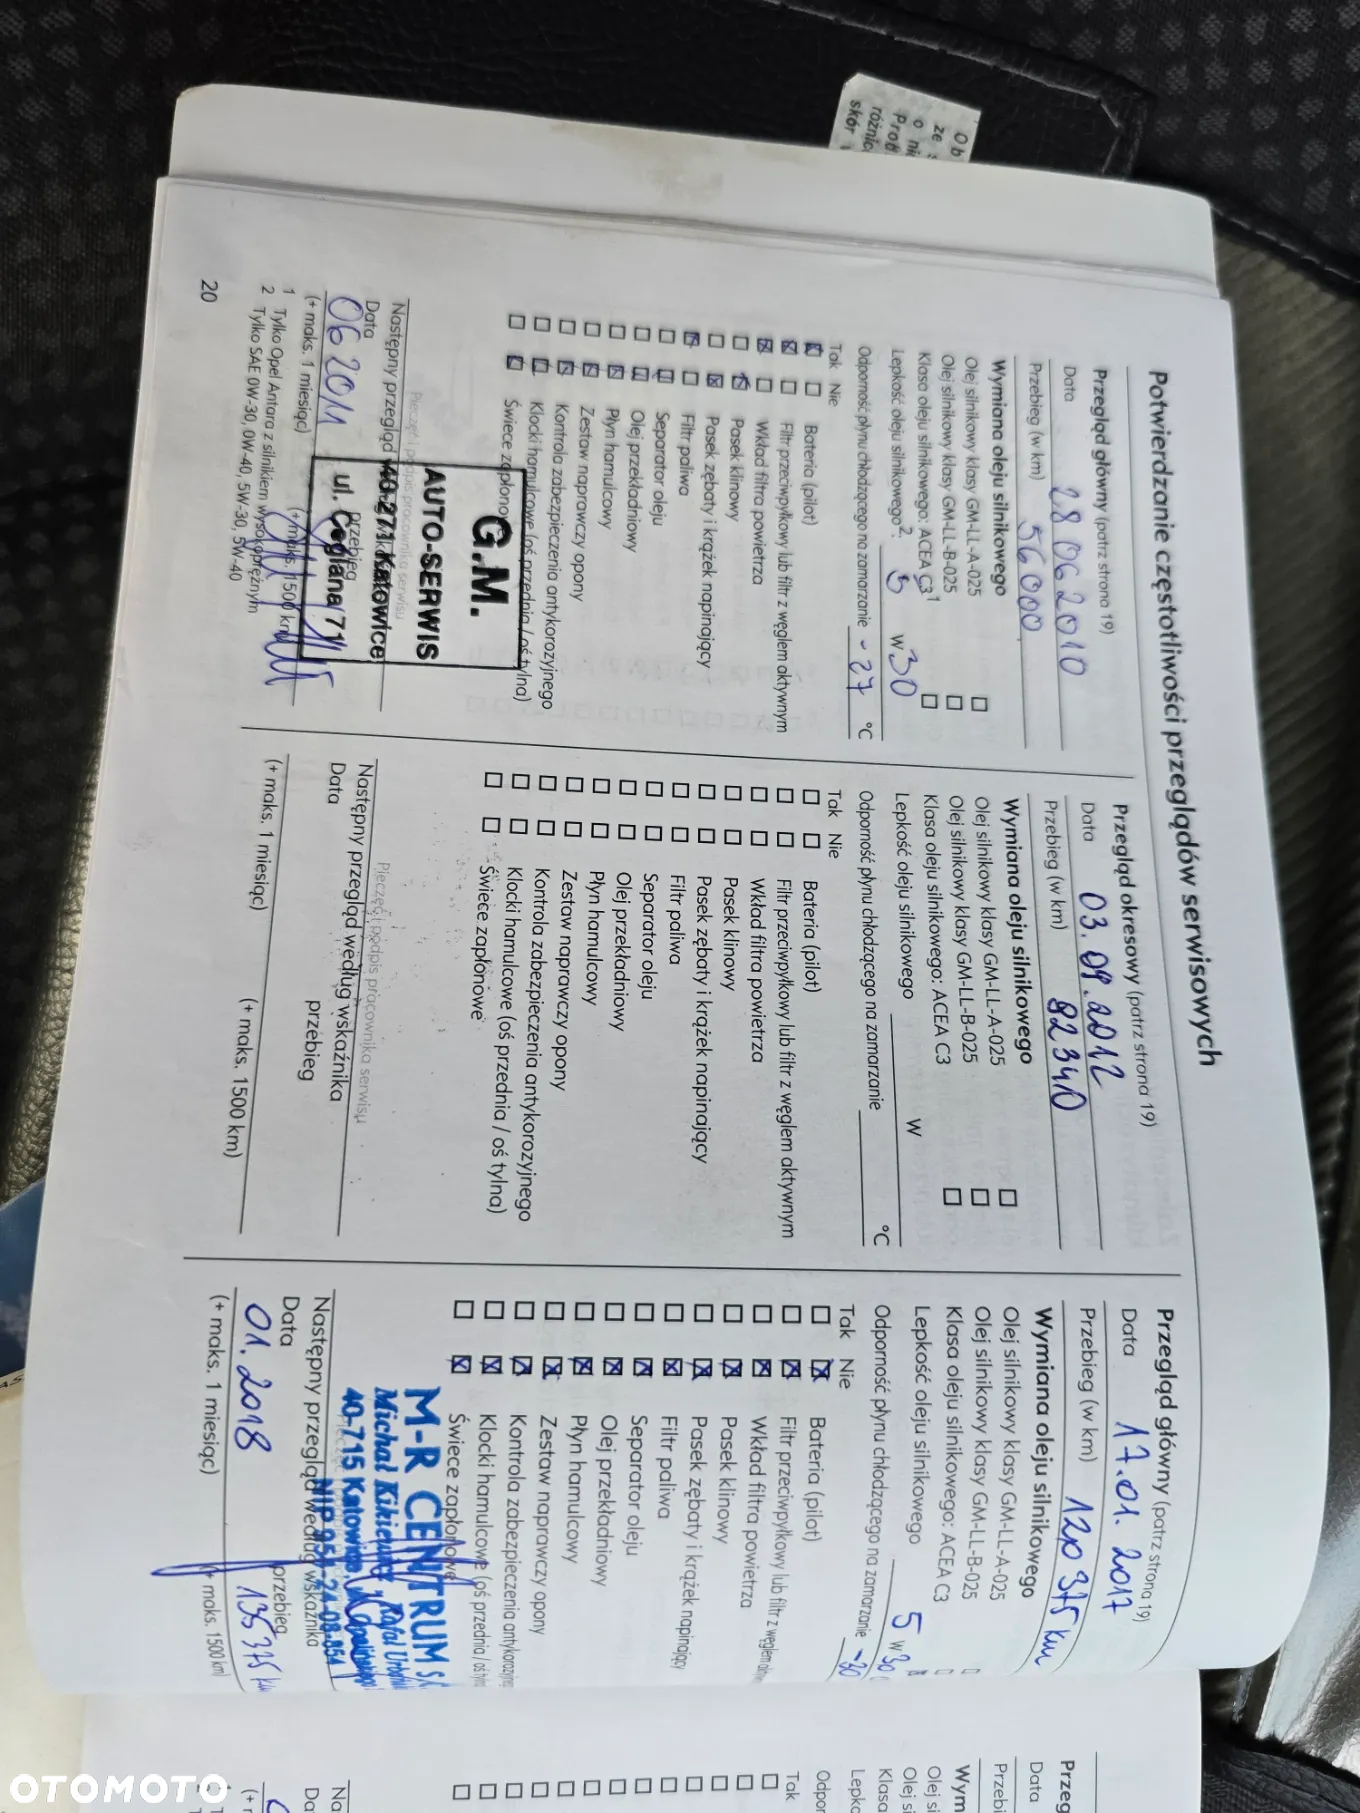 Potwierdzanie częstotliwości przeglądów serwisowych
Przegląd główny (patrz strona 19)
Data 28 06 2010
Przebieg (w km) 56000
Wymiana oleju silnikowego
Olej silnikowy klasy GM-LL-A-025
Olej silnikowy klasy GM-LL-B-025
Klasa oleju silnikowego: ACEA C3¹
Lepkość oleju silnikowego²: 5 W 30
Odporność płynu chłodzącego na zamarzanie -27 °C
Tak Nie
Bateria (pilot)
Filtr przeciwpyłkowy lub filtr z węglem aktywnym
Wkład filtra powietrza
Pasek klinowy
Pasek zębaty i krążek napinający
Filtr paliwa
Separator oleju
Olej przekładniowy
Płyn hamulcowy
Zestaw naprawczy opony
Kontrola zabezpieczenia antykorozyjnego
Klocki hamulcowe (oś przednia / oś tylna)
Świece zapłonowe
G.M.
AUTO-SERWIS
40-271 Katowice
ul. Ceglana 71
Pieczęć i podpis pracownika serwisu
Następny przegląd
Data przebieg
06 2011
(+ maks. 1 miesiąc) (+ maks. 1500 km)
1 Tylko Opel Antara z silnikiem wysokoprężnym
2 Tylko SAE 0W-30, 0W-40, 5W-30, 5W-40
20
Przegląd okresowy (patrz strona 19)
Data 03.09.2012
Przebieg (w km) 82340
Wymiana oleju silnikowego
Olej silnikowy klasy GM-LL-A-025
Olej silnikowy klasy GM-LL-B-025
Klasa oleju silnikowego: ACEA C3
Lepkość oleju silnikowego W
Odporność płynu chłodzącego na zamarzanie °C
Tak Nie
Bateria (pilot)
Filtr przeciwpyłkowy lub filtr z węglem aktywnym
Wkład filtra powietrza
Pasek klinowy
Pasek zębaty i krążek napinający
Filtr paliwa
Separator oleju
Olej przekładniowy
Płyn hamulcowy
Zestaw naprawczy opony
Kontrola zabezpieczenia antykorozyjnego
Klocki hamulcowe (oś przednia / oś tylna)
Świece zapłonowe
Pieczęć i podpis pracownika serwisu
Następny przegląd według wskaźnika
Data przebieg
(+ maks. 1 miesiąc) (+ maks. 1500 km)
Przegląd główny (patrz strona 19)
Data 17.01.2017
Przebieg (w km) 120 375 km
Wymiana oleju silnikowego
Olej silnikowy klasy GM-LL-A-025
Olej silnikowy klasy GM-LL-B-025
Klasa oleju silnikowego: ACEA C3
Lepkość oleju silnikowego 5 W 30
Odporność płynu chłodzącego na zamarzanie -30
Tak Nie
Bateria (pilot)
Filtr przeciwpyłkowy lub filtr z węglem
Wkład filtra powietrza
Pasek klinowy
Pasek zębaty i krążek napinający
Filtr paliwa
Separator oleju
Olej przekładniowy
Płyn hamulcowy
Zestaw naprawczy opony
Kontrola zabezpieczenia
Klocki hamulcowe (oś przednia / oś
Świece zapłonowe
M-R CENTRUM
Michał Rafał
40-715 Katowice
NIP 954-24-08-864
Następny przegląd według wskaźnika
Data przebieg
01.2018 135 375
(+ maks. 1 miesiąc) (+ maks. 1500 km)
Przeg
Data
Przebi
Wym
Olej si
Olej si
Klasa
Lepk
Odpor
Tak
Ob
ze
o ni
różnic
skór
OTOMOTO